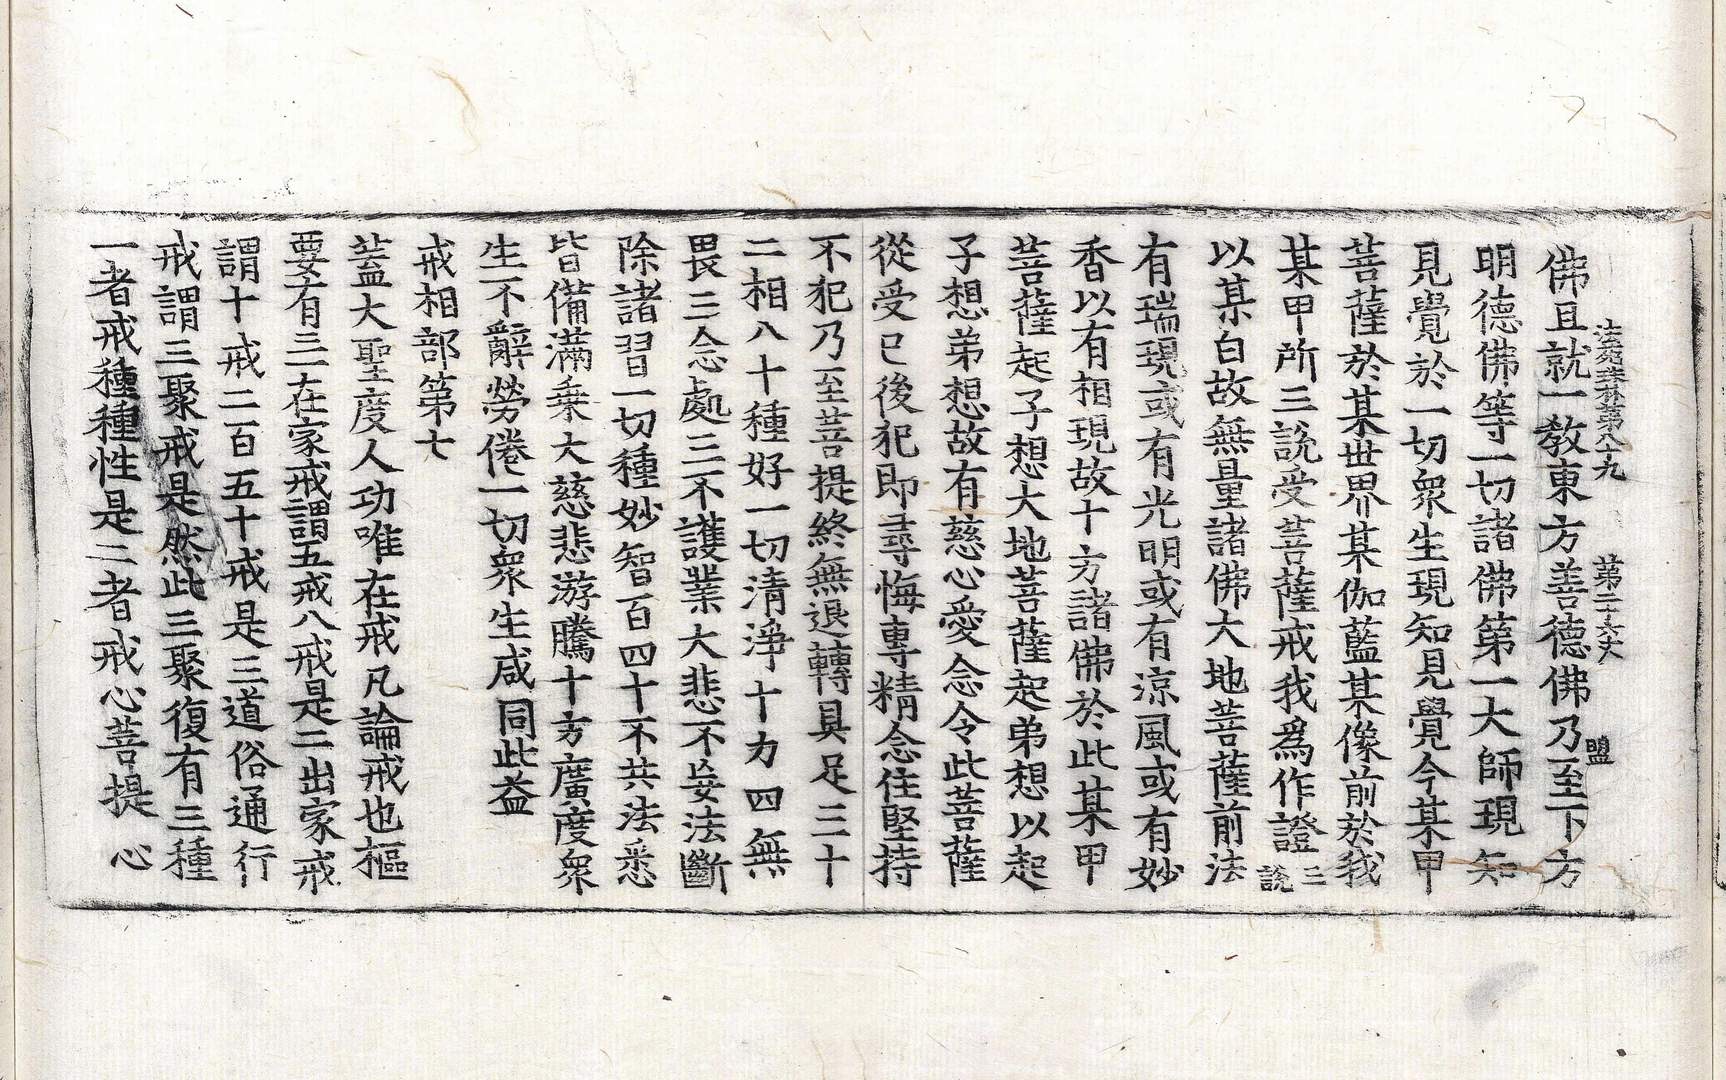 法苑珠林第八十九 第二十六丈 盟
佛且就一教東方善德佛乃至下方
明德佛等一切諸佛第一大師現知
見覺於一切衆生現知見覺今某甲
菩薩於某世界某伽藍某像前於我
某甲所三說受菩薩戒我爲作證三說
以某白故無量諸佛大地菩薩前法
有瑞現或有光明或有涼風或有妙
香以有相現故十方諸佛於此某甲
菩薩起子想大地菩薩起弟想以起
子想弟想故有慈心愛念令此菩薩
從受已後犯即尋悔專精念住堅持
不犯乃至菩提終無退轉具足三十
二相八十種好一切清淨十力四無
畏三念處三不護業大悲不妄法斷
除諸習一切種妙智百四十不共法悉
皆備滿乗大慈悲游騰十方廣度衆
生不辭勞倦一切衆生咸同此益
戒相部第七
蓋大聖度人功唯在戒凡論戒也樞
要有三在家戒謂五戒八戒是二出家戒
謂十戒二百五十戒是三道俗通行
戒謂三聚戒是然此三聚復有三種
一者戒種種性是二者戒心菩提心